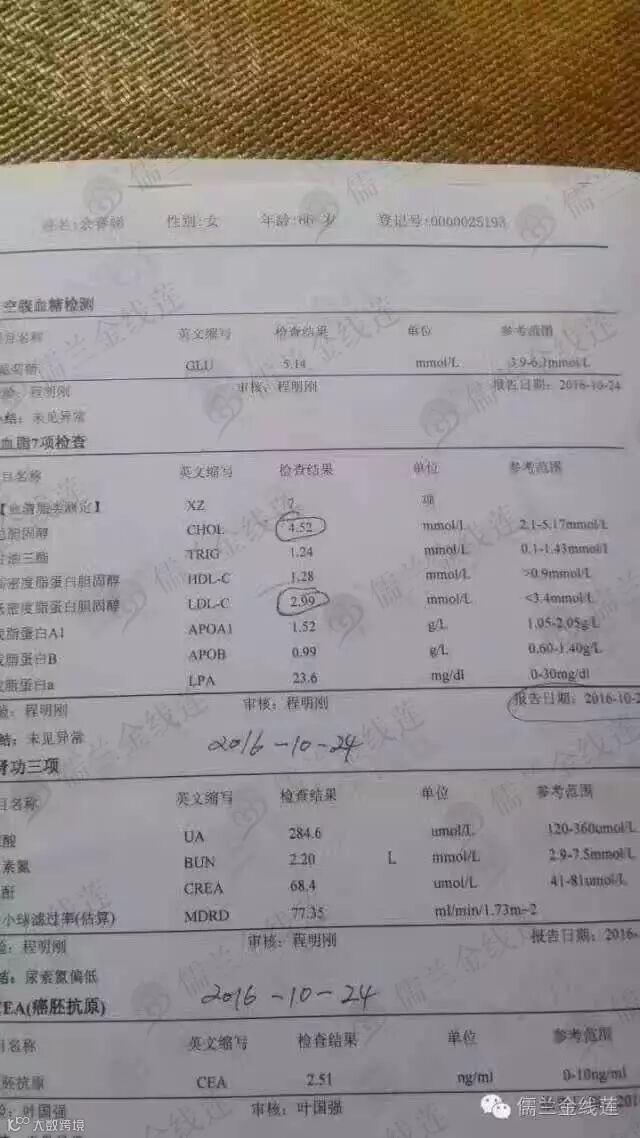 姓名:余 性别:女 年龄:66 岁 登记号:0000025193
空腹血糖检测
目名称 英文缩写 检查结果 单位 参考范围
萄糖 GLU 5.14 mmol/L 3.9-6.1mmol/L
验: 程明刚 审核: 程明刚 报告日期: 2016-10-24
结: 未见异常
血脂7项检查
目名称 英文缩写 检查结果 单位 参考范围
【血清脂类测定】 XZ 7 项
总胆固醇 CHOL 4.52 mmol/L 2.1-5.17mmol/L
甘油三酯 TRIG 1.24 mmol/L 0.1-1.43mmol/L
高密度脂蛋白胆固醇 HDL-C 1.28 mmol/L >0.9mmol/L
低密度脂蛋白胆固醇 LDL-C 2.99 mmol/L <3.4mmol/L
脂蛋白A1 APOA1 1.52 g/L 1.05-2.05g/L
脂蛋白B APOB 0.99 g/L 0.60-1.40g/L
脂蛋白a LPA 23.6 mg/dl 0-30mg/dl
验: 程明刚 审核: 程明刚 报告日期: 2016-10-2
结: 未见异常 2016-10-24
肾功三项
目名称 英文缩写 检查结果 单位 参考范围
酸 UA 284.6 umol/L 120-360umol/L
素氮 BUN 2.20 L mmol/L 2.9-7.5mmol/L
酐 CREA 68.4 umol/L 41-81umol/L
小球滤过率(估算) MDRD 77.35 ml/min/1.73m~2
验: 程明刚 审核: 程明刚 报告日期: 2016-
结: 尿素氮偏低
CEA(癌胚抗原) 2016-10-24
目名称 英文缩写 检查结果 单位 参考范围
胚抗原 CEA 2.51 ng/ml 0-10ng/ml
叶国强 审核: 叶国强
儒兰金线莲
大数跨境